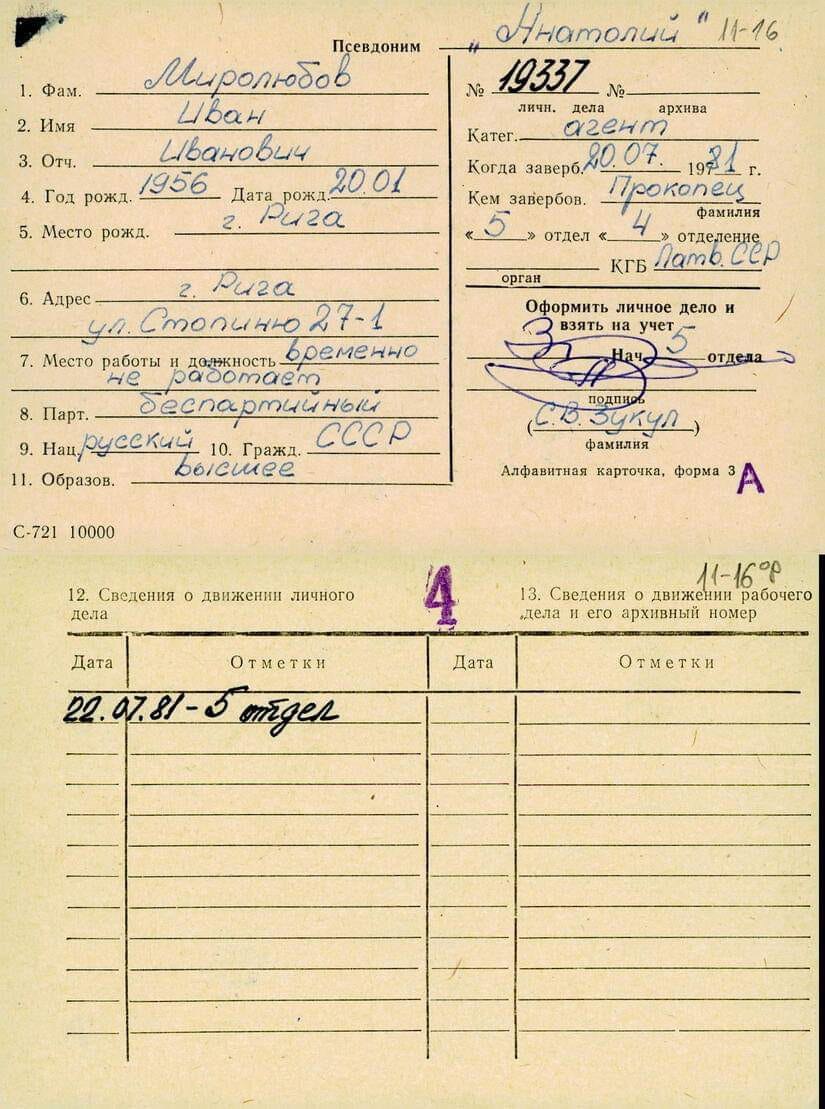 Псевдоним „Анатолий" 11-16
1. Фам. Миролюбов
2. Имя Иван
3. Отч. Иванович
4. Год рожд. 1956 Дата рожд. 20.01
5. Место рожд. г. Рига
6. Адрес г. Рига
ул. Стопиню 27-1
7. Место работы и должность временно
не работает
8. Парт. беспартийный
9. Нац. русский 10. Гражд. СССР
11. Образов. высшее
С-721 10000
№ 19337 №
личн. дела архива
Катег. агент
Когда заверб. 20.07. 1981 г.
Кем завербов. Прокопец
фамилия
« 5 » отдел « 4 » отделение
КГБ Латв. ССР
орган
Оформить личное дело и
взять на учет
Нач. 5 отдела
подпись
(С.В. Зукул)
фамилия
Алфавитная карточка, форма 3 А
4
11-16
12. Сведения о движении личного
дела
13. Сведения о движении рабочего
дела и его архивный номер
Дата Отметки Дата Отметки
22.07.81 - 5 отдел